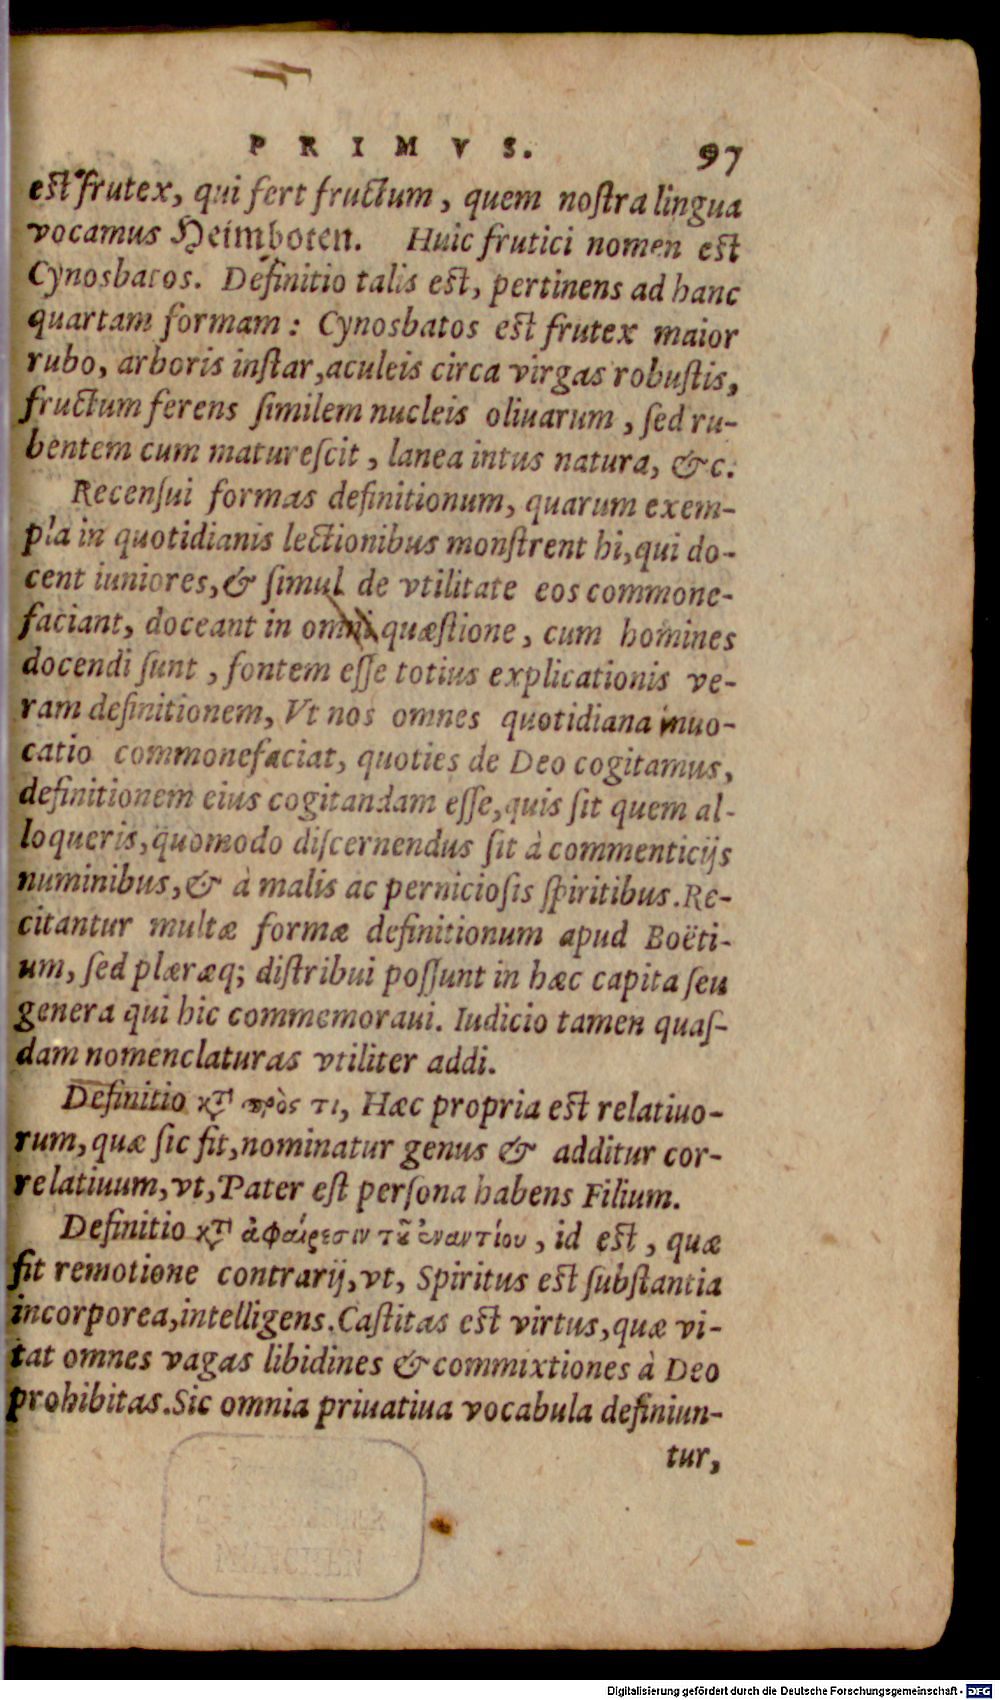 PRIMVS. 97
est frutex, qui fert fructum, quem nostra lingua
vocamus Heimboten. Huic frutici nomen est
Cynosbatos. Definitio talis est, pertinens ad hanc
quartam formam: Cynosbatos est frutex maior
rubo, arboris instar, aculeis circa virgas robustis,
fructum ferens similem nucleis oliuarum, sed ru-
bentem cum maturescit, lanea intus natura, &c.
Recensui formas definitionum, quarum exem-
pla in quotidianis lectionibus monstrent hi, qui do-
cent iuniores, & simul de vtilitate eos commone-
faciant, doceant in omni quæstione, cum homines
docendi sunt, fontem esse totius explicationis ve-
ram definitionem, Vt nos omnes quotidiana inuo-
catio commonefaciat, quoties de Deo cogitamus,
definitionem eius cogitandam esse, quis sit quem al-
loqueris, quomodo discernendus sit à commenticijs
numinibus, & à malis ac perniciosis spiritibus. Re-
citantur multæ formæ definitionum apud Boëti-
um, sed plæræq; distribui possunt in hæc capita seu
genera qui hic commemoraui. Iudicio tamen quas-
dam nomenclaturas vtiliter addi.
Definitio κτ̀ πρὸς τι, Hæc propria est relatiuo-
rum, quæ sic fit, nominatur genus & additur cor-
relatiuum, vt, Pater est persona habens Filium.
Definitio κτ̀ ἀφαίρεσιν τοῦ ἐναντίου, id est, quæ
fit remotione contrarij, vt, Spiritus est substantia
incorporea, intelligens. Castitas est virtus, quæ vi-
tat omnes vagas libidines & commixtiones à Deo
prohibitas. Sic omnia priuatiua vocabula definiun-
tur,
Digitalisierung gefördert durch die Deutsche Forschungsgemeinschaft - DFG